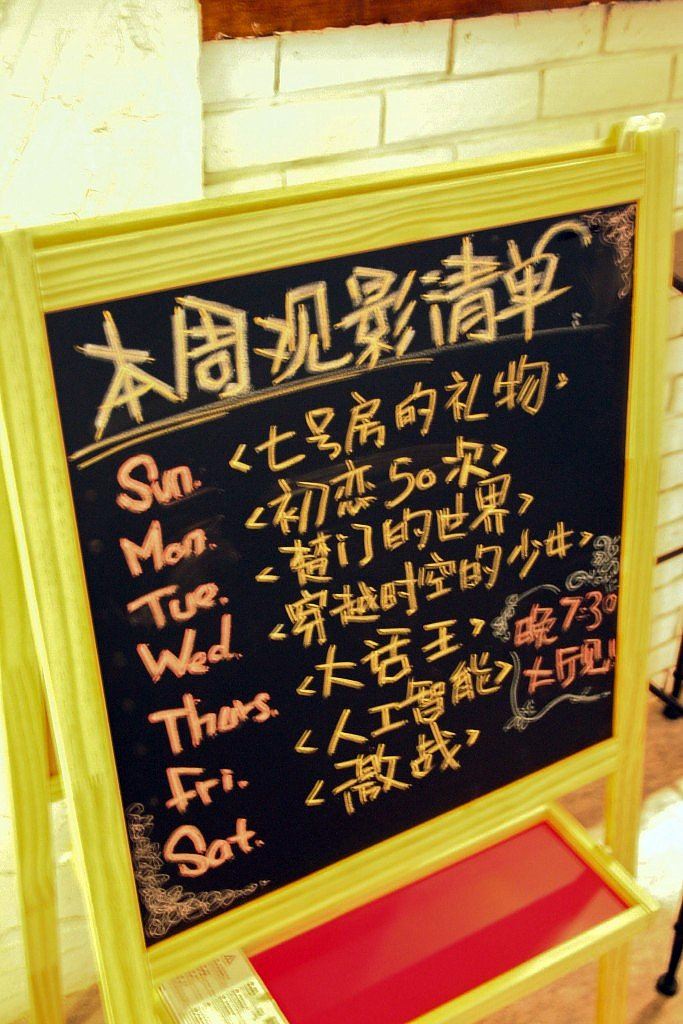 本周观影清单
Sun. <七号房的礼物>
Mon. <初恋50次>
Tue. <楚门的世界>
Wed. <穿越时空的少女>
Thurs. <大话王>
Fri. <人工智能>
Sat. <激战>
晚7:30
大厅见!